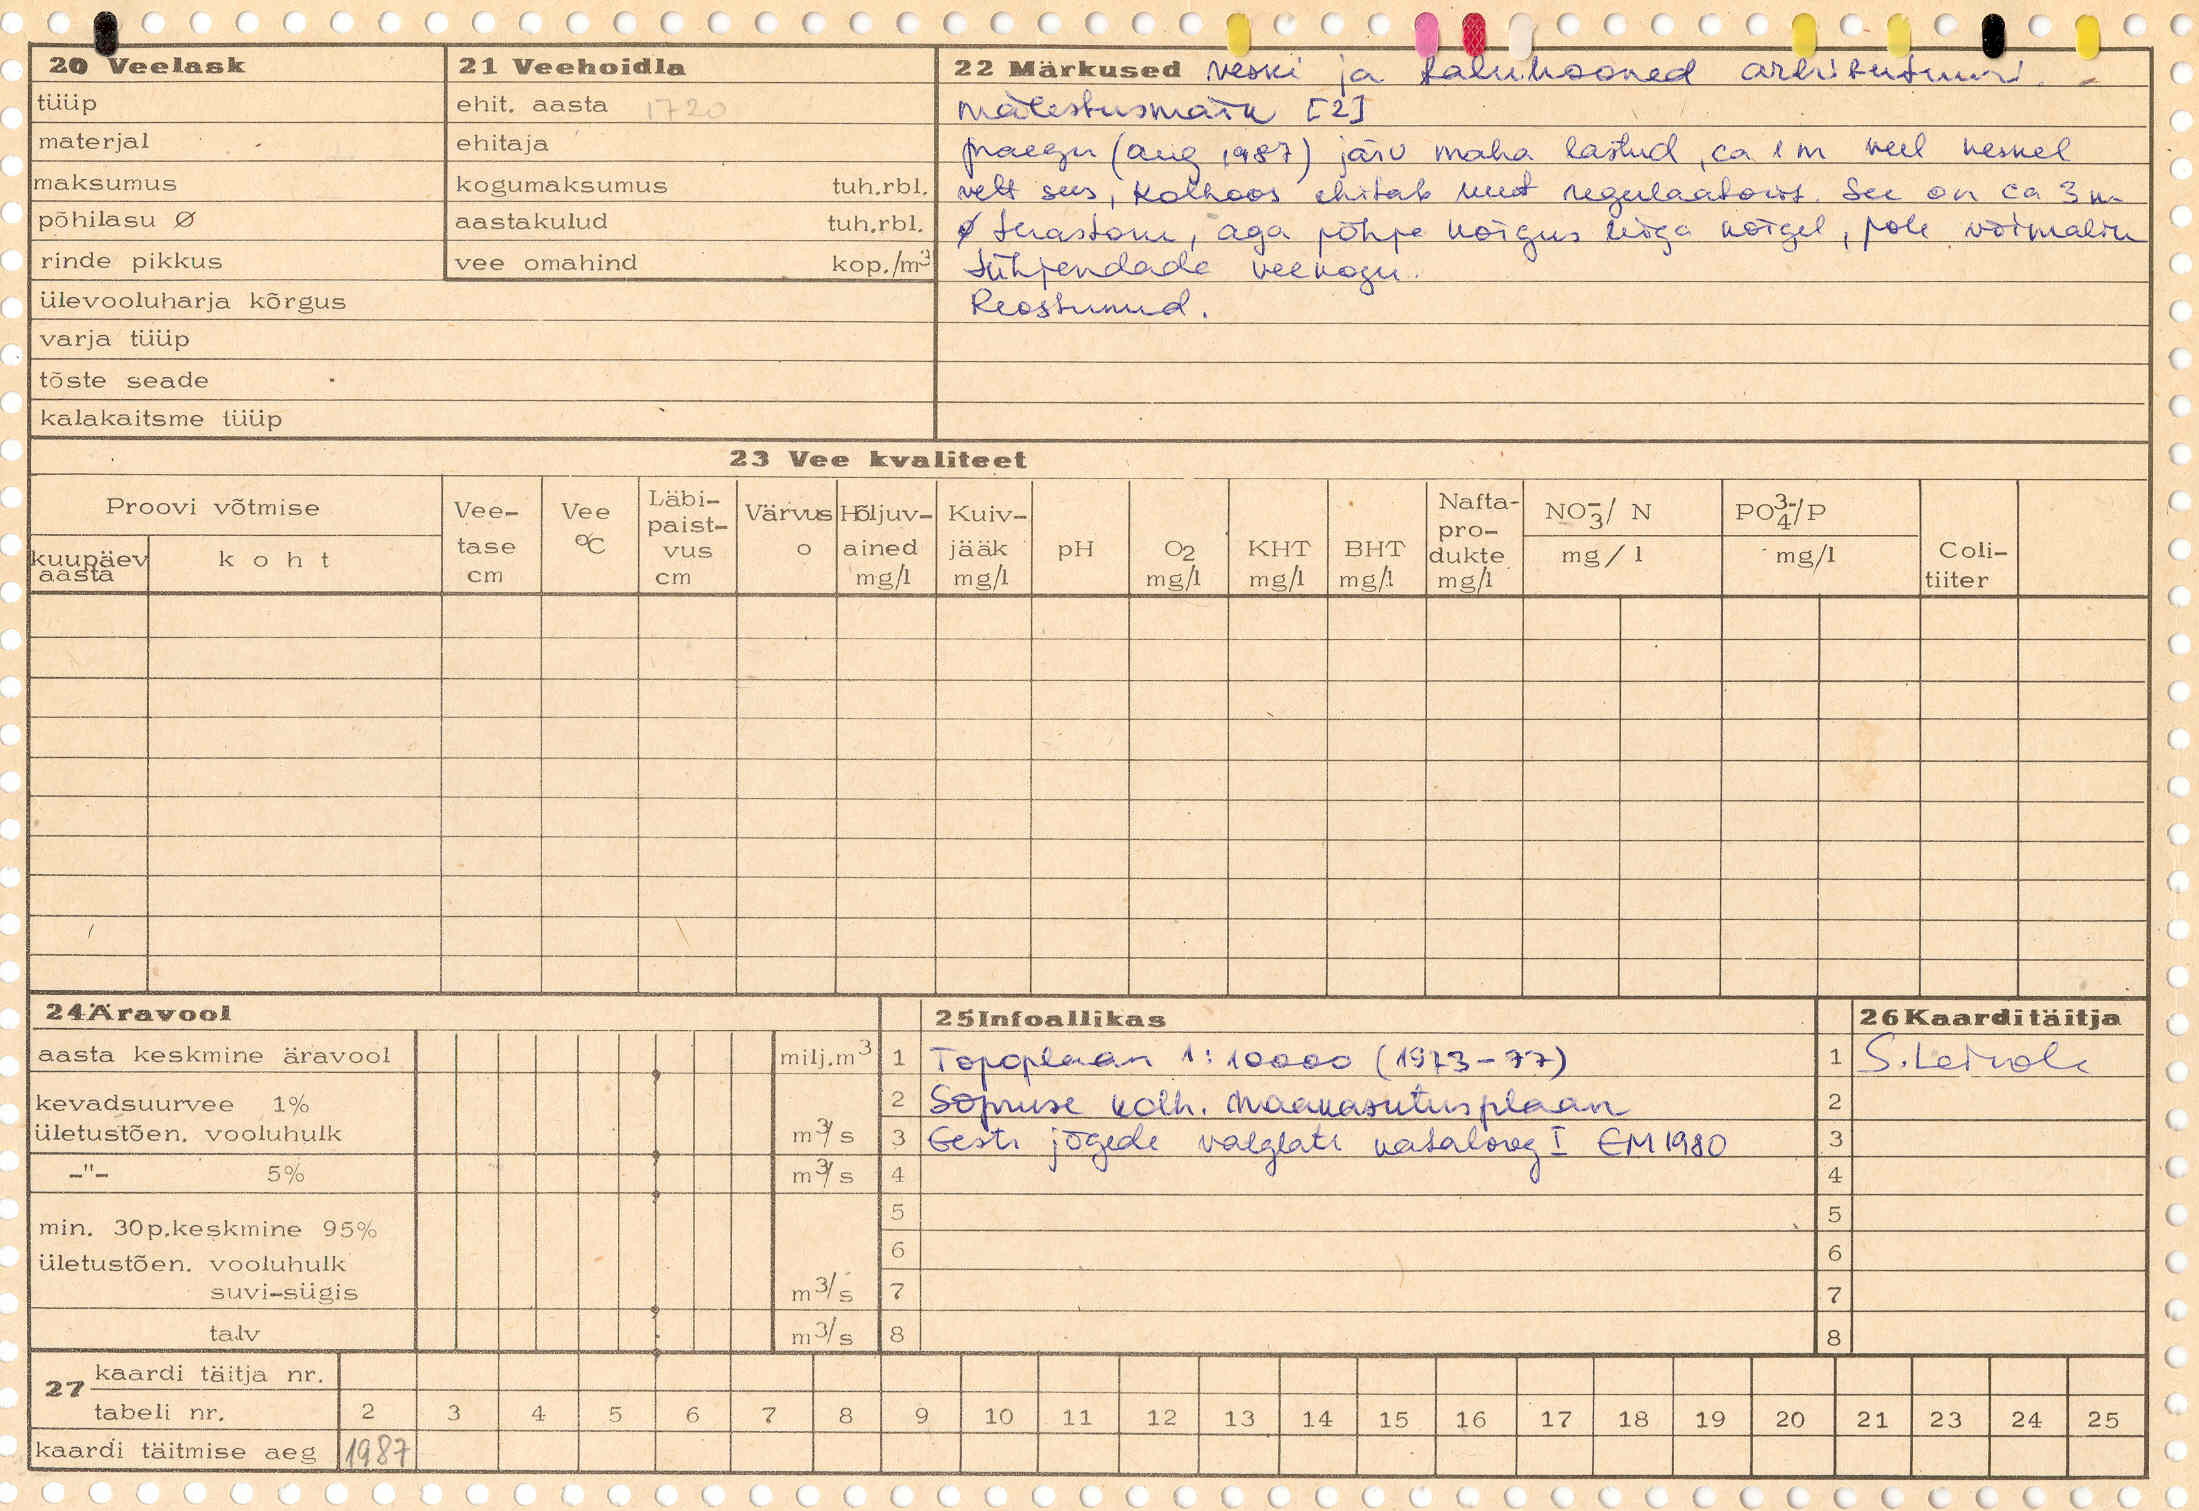 20 Veelask
tüüp
materjal
maksumus
põhilasu Ø
rinde pikkus
ülevooluharja kõrgus
varja tüüp
tõste seade
kalakaitsme tüüp
21 Veehoidla
ehit. aasta 1720
ehitaja
kogumaksumus tuh.rbl.
aastakulud tuh.rbl.
vee omahind kop./m³
22 Märkused veski ja taluhooned arhitektuuri
mälestusmärk [2]
praegu (aug 1987) järv maha lastud, ca 1 m veel keskel
vett sees, kolhoos ehitab uut regulaatorit. See on ca 3 m
Ø terastoru, aga põhja kõrgus liiga kõrgel, pole võimalik
tühjendada veekogu.
Reostunud.
23 Vee kvaliteet
Proovi võtmise
kuupäev aasta
koht
Vee-tase cm
Vee °C
Läbi-paist-vus cm
Värvus o
Hõljuv-ained mg/l
Kuiv-jääk mg/l
pH
O₂ mg/l
KHT mg/l
BHT mg/l
Nafta-pro-dukte mg/l
NO₃⁻/ N
mg/l
PO₄³⁻/P
mg/l
Coli-tiiter
24 Äravool
aasta keskmine äravool milj.m³
kevadsuurvee 1%
ületustõen. vooluhulk m³/s
-"- 5% m³/s
min. 30p.keskmine 95%
ületustõen. vooluhulk
suvi-sügis m³/s
talv m³/s
25 Infoallikas
1 Topoplaan 1:10000 (1973-77)
2 Sõpruse kolh. maakasutusplaan
3 Eesti jõgede valglate kataloog I EM 1980
4
5
6
7
8
26 Kaarditäitja
1
2
3
4
5
6
7
8
27 kaardi täitja nr.
tabeli nr. 2 3 4 5 6 7 8 9 10 11 12 13 14 15 16 17 18 19 20 21 23 24 25
kaardi täitmise aeg 1987